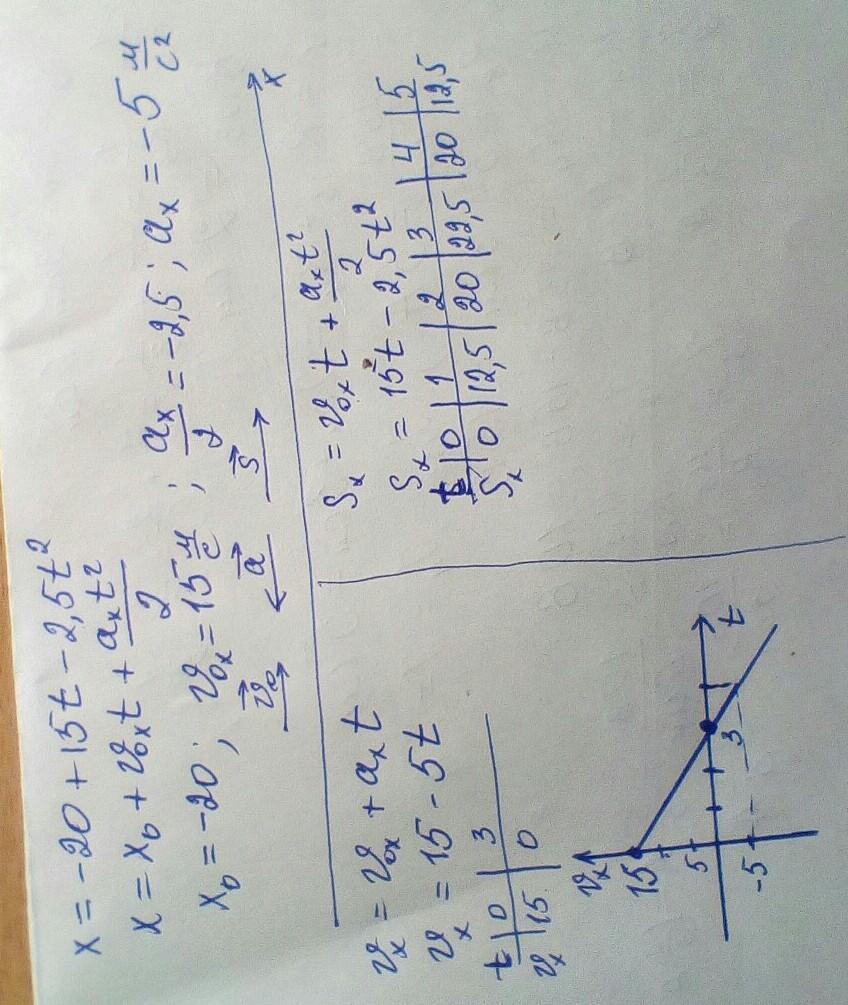 x = -20 + 15t - 2,5t²
x = x₀ + v₀ₓt + aₓt²/2
x₀ = -20; v₀ₓ = 15 м/с; aₓ/2 = -2,5; aₓ = -5 м/с²
v₀ a s x
vₓ = v₀ₓ + aₓt
vₓ = 15 - 5t
t 0 3
vₓ 15 0
vₓ
15
5
3 t
-5
Sₓ = v₀ₓt + aₓt²/2
Sₓ = 15t - 2,5t²
t 0 1 2 3 4 5
Sₓ 0 12,5 20 22,5 20 12,5